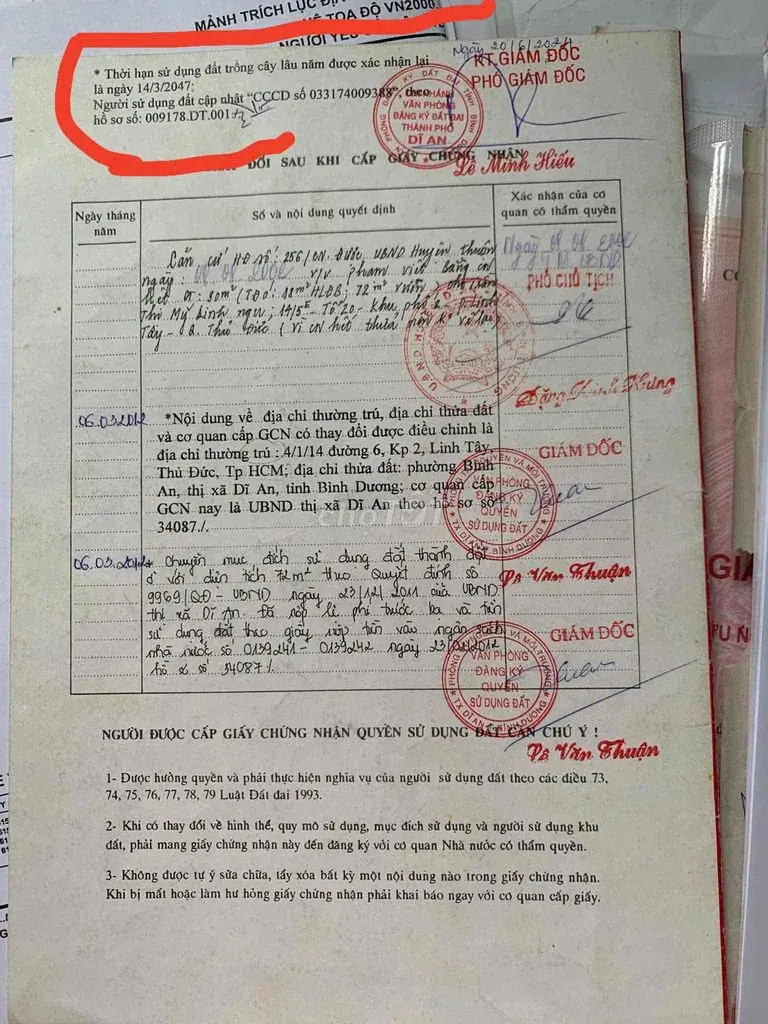 MẢNH TRÍCH LỤC ĐỊA
TỌA ĐỘ VN2000
NGƯỜI YÊU
* Thời hạn sử dụng đất trồng cây lâu năm được xác nhận lại
là ngày 14/3/2047;
Người sử dụng đất cập nhật “CCCD số 033174009388”, theo
hồ sơ số: 009178.DT.001
Ngày 20/6/2024
KT.GIÁM ĐỐC
PHÓ GIÁM ĐỐC
CHI NHÁNH
VĂN PHÒNG
ĐĂNG KÝ ĐẤT ĐAI
THÀNH PHỐ
DĨ AN
Lê Minh Hiếu
ĐỔI SAU KHI CẤP GIẤY CHỨNG NHẬN
Ngày tháng năm
Số và nội dung quyết định
Xác nhận của cơ quan có thẩm quyền
Căn cứ HĐ số: 256/CN. Được UBND Huyện thuận
ngày: v/v phạm viết Bằng
90m² 18m² HLĐB; 72m² vườn
Thị Mỹ Linh ngụ; 14/5 - Tổ 20 - Khu phố 2
Tây - Q. Thủ Đức
PHÓ CHỦ TỊCH
Đặng Hưng
06.03.2012
*Nội dung về địa chỉ thường trú, địa chỉ thửa đất
và cơ quan cấp GCN có thay đổi được điều chỉnh là
địa chỉ thường trú : 4/1/14 đường 6, Kp 2, Linh Tây,
Thủ Đức, Tp HCM; địa chỉ thửa đất: phường Bình
An, thị xã Dĩ An, tỉnh Bình Dương; cơ quan cấp
GCN nay là UBND thị xã Dĩ An theo hồ sơ số
34087./.
GIÁM ĐỐC
VĂN PHÒNG
ĐĂNG KÝ
QUYỀN
SỬ DỤNG ĐẤT
Lê Văn Thuận
06.03.2012
* Chuyển mục đích sử dụng đất thành đất
ở với diện tích 72m² theo Quyết định số
9989/QĐ-UBND ngày 23/12/2011 của UBND
thị xã Dĩ An. Đã nộp lệ phí trước bạ và tiền
sử dụng đất theo giấy nộp tiền vào ngân sách
nhà nước số 0139241-0139242 ngày
hồ sơ số 34087/.
GIÁM ĐỐC
VĂN PHÒNG
ĐĂNG KÝ
QUYỀN
SỬ DỤNG ĐẤT
Lê Văn Thuận
NGƯỜI ĐƯỢC CẤP GIẤY CHỨNG NHẬN QUYỀN SỬ DỤNG ĐẤT CẦN CHÚ Ý !
1- Được hưởng quyền và phải thực hiện nghĩa vụ của người sử dụng đất theo các điều 73,
74, 75, 76, 77, 78, 79 Luật Đất đai 1993.
2- Khi có thay đổi về hình thể, quy mô sử dụng, mục đích sử dụng và người sử dụng khu
đất, phải mang giấy chứng nhận này đến đăng ký với cơ quan Nhà nước có thẩm quyền.
3- Không được tự ý sửa chữa, tẩy xóa bất kỳ một nội dung nào trong giấy chứng nhận.
Khi bị mất hoặc làm hư hỏng giấy chứng nhận phải khai báo ngay với cơ quan cấp giấy.